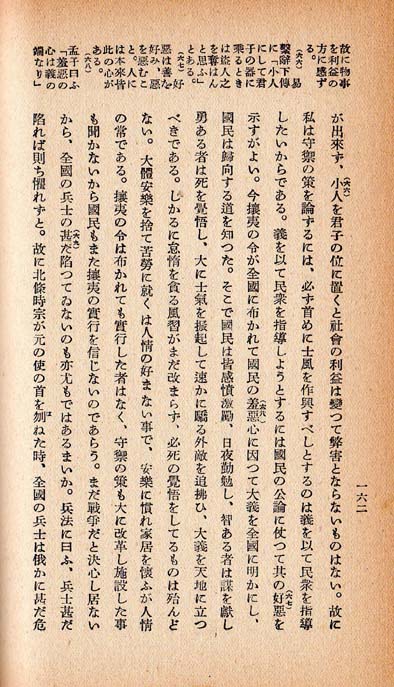 故に物事
を利益の
方に感ず
る。
(六六) 易
繫辭下傳
に「小人
にして君
子の器に
乘るとき
は盜人之
を奪はん
と思ふ」
とある。
(六七) 好
惡は善を
好み、惡
を惡むこ
と。人に
は本來皆
此の心が
ある。
(六八)
孟子曰ふ
「羞惡の
心は義の
端なり」
が出來ず、小人を君子の位に置くと社會の利益は變つて弊害とならないものはない。故に
私は守禦の策を論ずるには、必ず首めに士風を作興すべしとするのは義を以て民衆を指導
したいからである。義を以て民衆を指導しようとするには國民の公論に仗つて其の好惡を
示すがよい。今攘夷の令が全國に布かれて國民の羞惡心に因つて大義を全國に明かにし、
國民は歸向する道を知つた。そこで國民は皆感憤激勵、日夜勤勉し、智ある者は謀を獻し
勇ある者は死を覺悟し、大に士氣を振起して速かに驕る外敵を追拂ひ、大義を天地に立つ
べきである。しかるに怠惰を貪る風習がまだ改まらず、必死の覺悟をしてるものは殆んど
ない。大體安樂を捨て苦勞に就くは人情の好まない事で、安樂に慣れ家居を懷ふが人情
の常である。攘夷の令は布かれても實行した者はなく、守禦の策も大に改革し施設した事
も聞かないから國民もまた攘夷の實行を信じないのであらう。まだ戰爭だと決心し居ない
から、全國の兵士の甚だ陷つてゐないのも亦尤もではあるまいか。兵法に曰ふ、兵士甚だ
陷れば則ち懼れずと。故に北條時宗が元の使の首を刎ねた時、全國の兵士は俄かに甚だ危
一六二